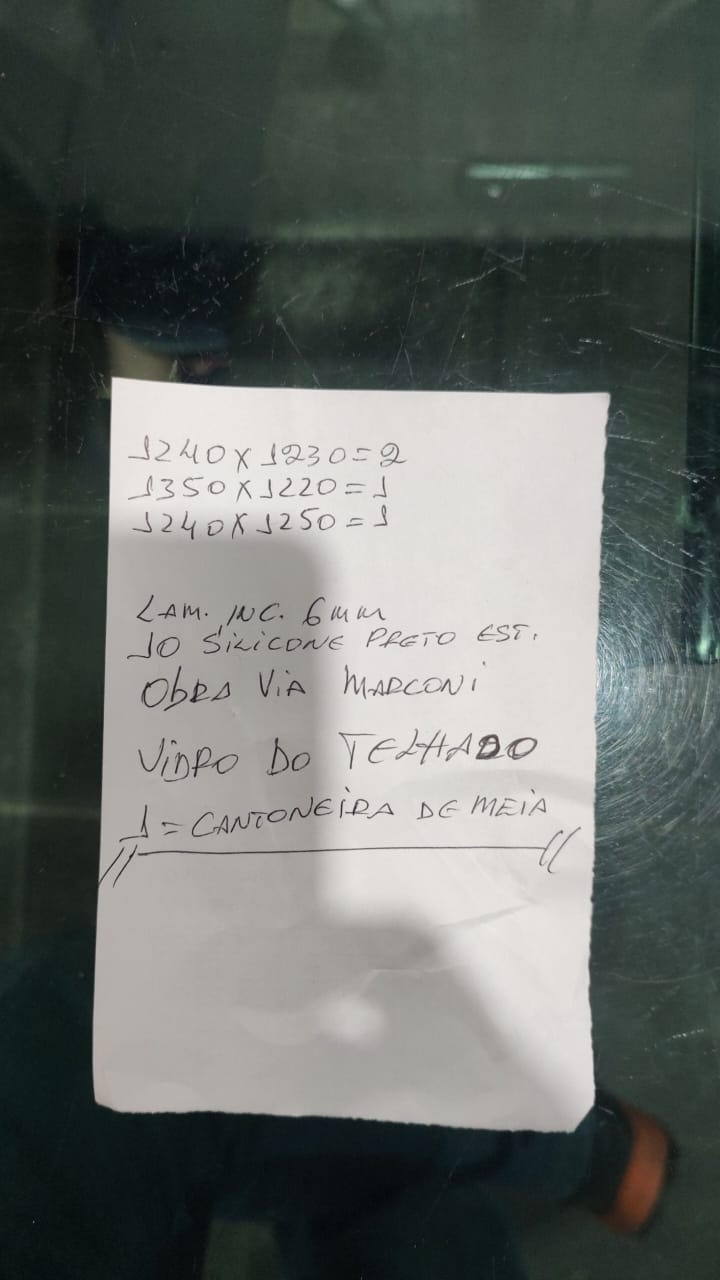 1240X1230=2
1350X1220=1
1240X1250=1
LAM. INC. 6mm
10 SILICONE PRETO EST.
ObRA ViA MARCONi
ViDRO DO TELHADO
1=CANTONEiRA DE MEiA